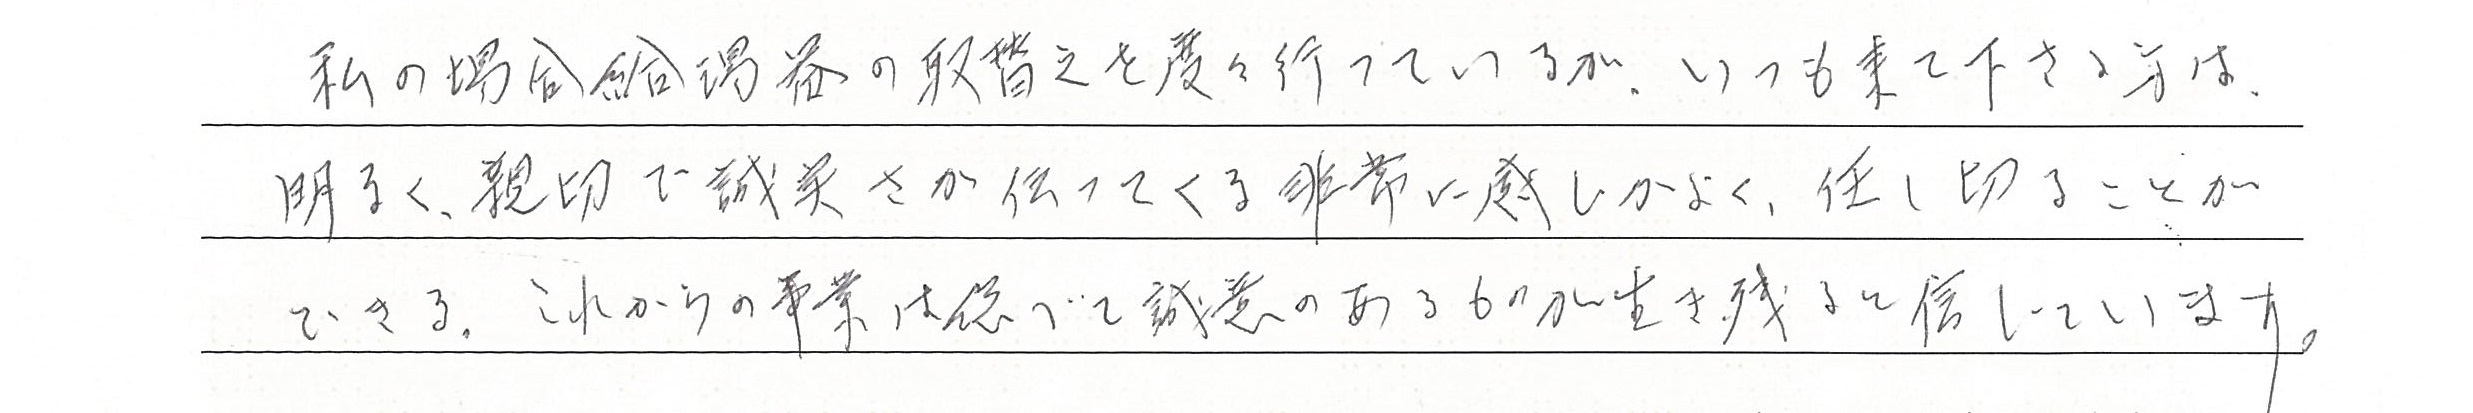 私の場合給湯器の取替えを度々行っているが、いつも来て下さる方は、
明るく、親切で誠実さが伝ってくる非常に感じがよく、任し切ることが
できる。これからの事業は総べて誠意のあるものが生き残ると信じています。